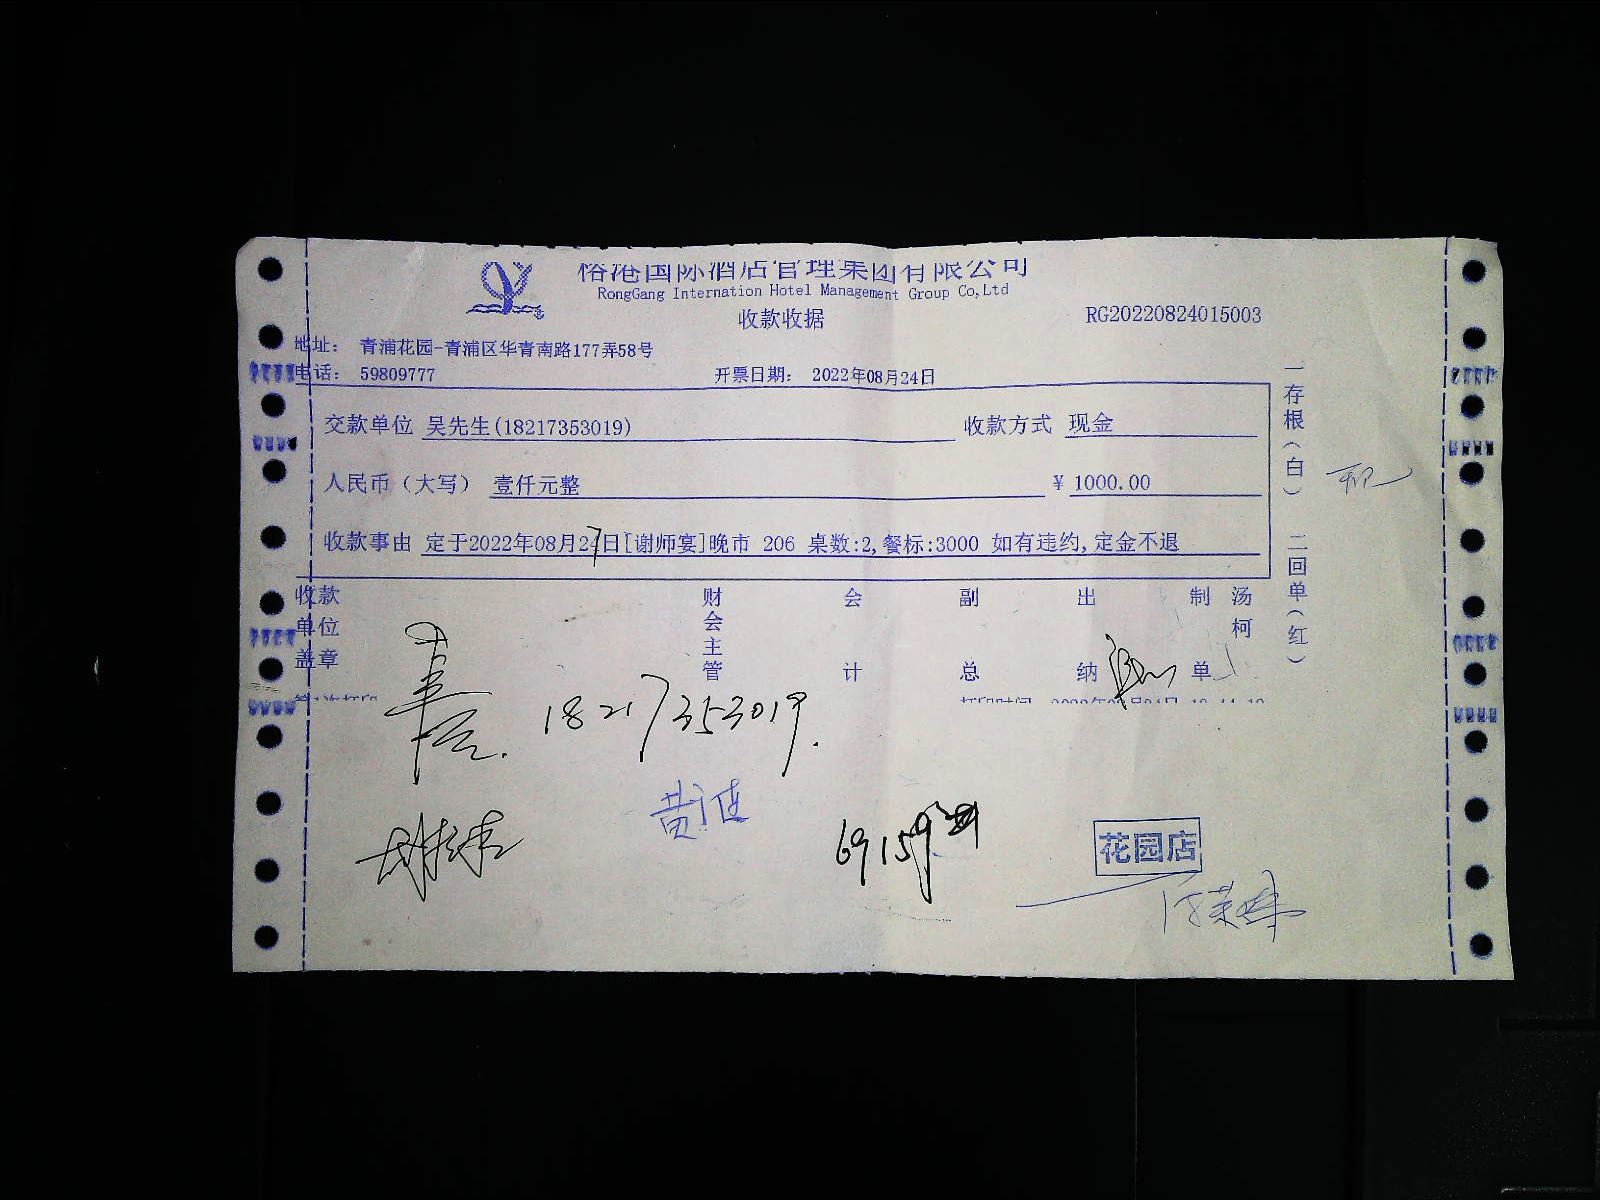 港国际酒店管理集团有限公司
RongGang Internation Hotel Management Group Co,Ltd
收款收据
RG20220824015003
地址： 青浦花园-青浦区华青南路177弄58号
电话： 59809777
开票日期： 2022年08月24日
交款单位 吴先生(18217353019)
收款方式 现金
人民币（大写） 壹仟元整
¥ 1000.00
收款事由 定于2022年08月27日[谢师宴]晚市 206 桌数:2,餐标:3000 如有违约,定金不退
一存根（白） 二回单（红）
收款单位盖章
财会主管
会计
副总
出纳
制单
汤柯
18217353019.
黄
69159
花园店